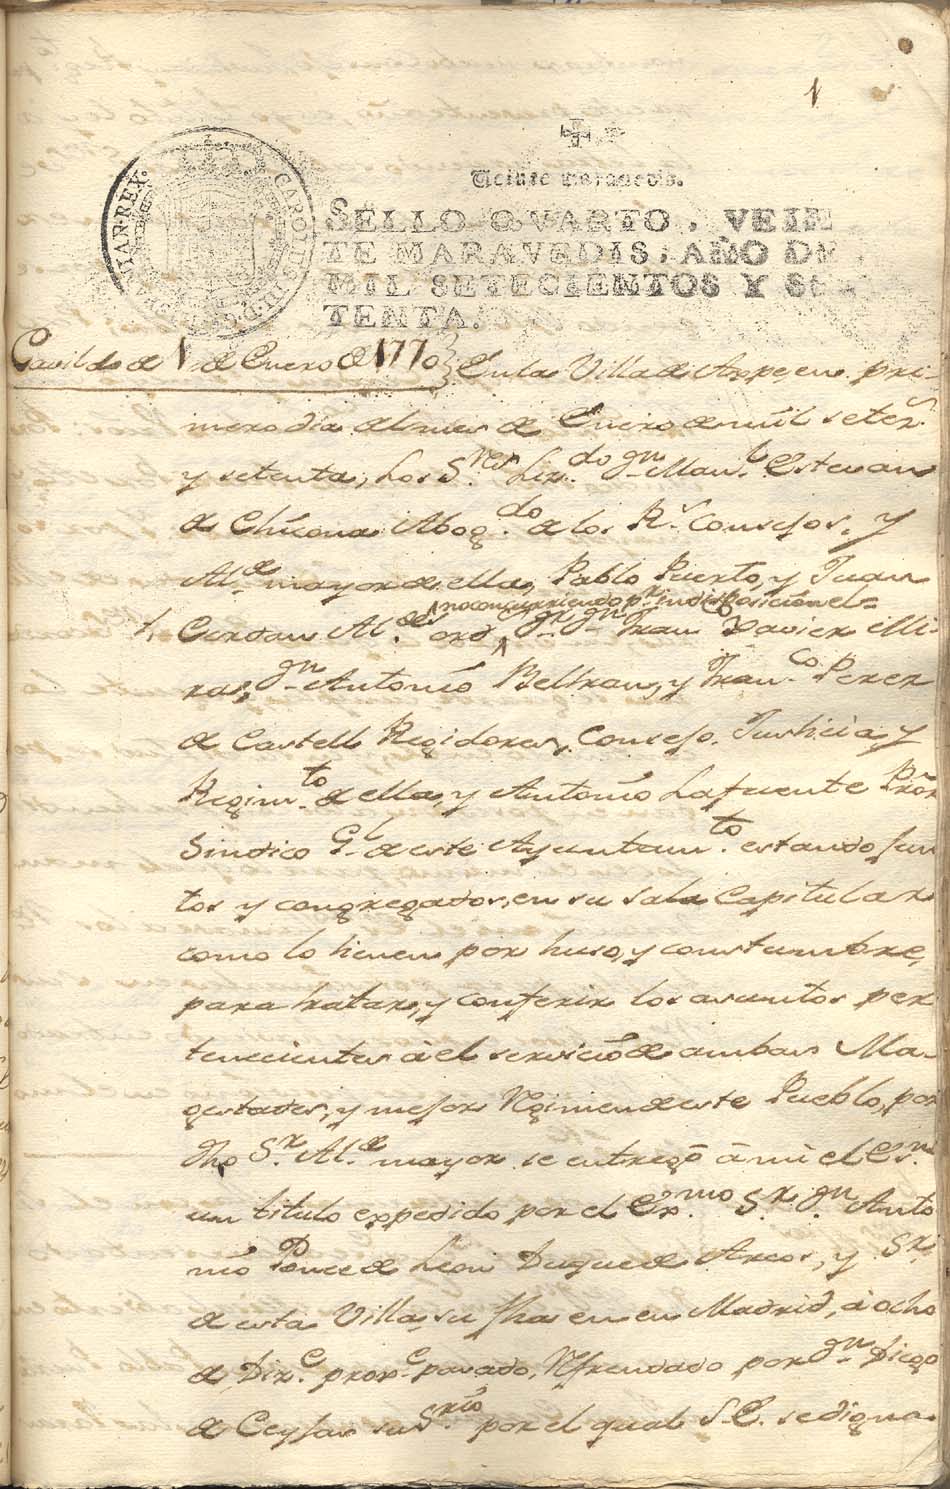 1
Veinte maravedis.
SELLO QVARTO, VEIN
TE MARAVEDIS, AÑO DE
MIL SETECIENTOS Y SE
TENTA.
CAROLUS III D. G.
HISPANIAR. REX.
Cavildo de 1 de Enero de 1770 } En la Villa de Aspe, en pri-
mero dia del mes de Enero de mil setez.s
y setenta; Los S.res Liz.do Dn Man.l Estevan
de Chicona Abog.do de los R.s Consejos, y
Al.de mayor de ella, Pablo Puerto, y Juan
no concurriendo p.r indisposicion el =
Cerdan Al.des ord.s Dn Fran.co Xavier Mi
ra, Dn Antonio Beltran, y Fran.co Perez
de Castell Regidores, Consejo, Justicia y
Regim.to de ella, y Antonio Lafuente Pror
Sindico G.l de este Ayuntam.to estando jun
tos y congregados, en su sala Capitular
como lo tienen por huso, y constumbre,
para tratar, y conferir los asuntos per
tenecientes à el servicio de ambas Ma-
gestades, y mejor Regimen de este Pueblo, por
dho S.r Al.de mayor se entregó á mi el Es.no
un titulo expedido por el Ex.mo S.r Dn Anto
nio Ponce de Leon Duque de Arcos, y S.r
de esta Villa, su fha en en Madrid, à ocho
de Diz.e prox.e pasado, Refrendado por Dn Diego
de Ceyjas su S.rio por el qual S. E. se digna